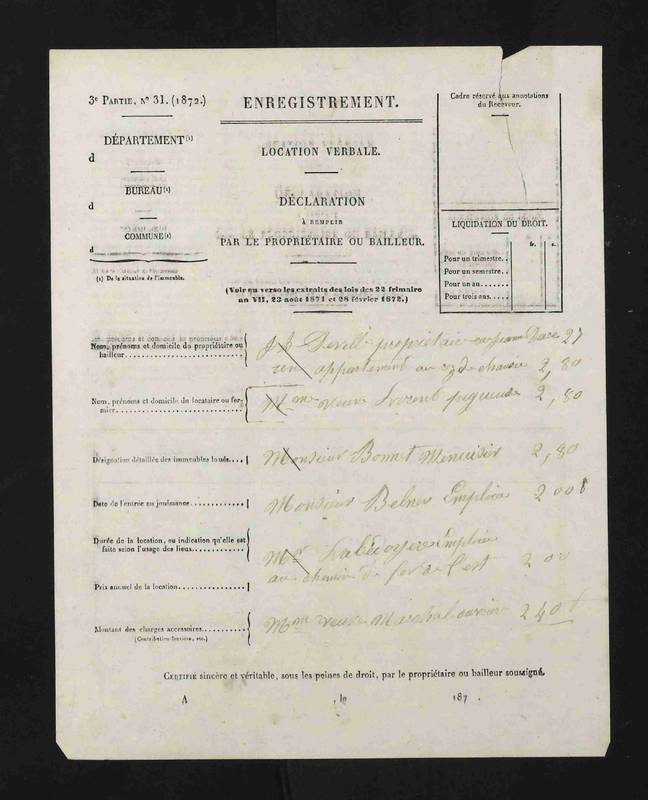 3e PARTIE, No 31. (1872.)
DÉPARTEMENT (1)
d
BUREAU (1)
d
COMMUNE (1)
d
(1) De la situation de l'immeuble.
ENREGISTREMENT.
LOCATION VERBALE.
DÉCLARATION
À REMPLIR
PAR LE PROPRIÉTAIRE OU BAILLEUR.
(Voir au verso les extraits des lois des 22 frimaire
an VII, 23 août 1871 et 28 février 1872.)
Cadre réservé aux annotations
du Receveur.
LIQUIDATION DU DROIT.
fr. c.
Pour un trimestre..
Pour un semestre..
Pour un an.......
Pour trois ans.....
Nom, prénoms et domicile du propriétaire ou
bailleur
propriétaire 27
un appartement au rez de chaussée 2,80
Nom, prénoms et domicile du locataire ou fer-
mier
Mme veuve 2,80
Désignation détaillée des immeubles loués....
Monsieur Bonnet Menuisier 2,80
Date de l'entrée en jouissance
Monsieur Belner Employé 200
Durée de la location, ou indication qu'elle est
faite selon l'usage des lieux
Mr Employé
au chemin de fer de l'est 200
Prix annuel de la location
Montant des charges accessoires
(Contribution foncière, etc.)
Mme veuve Marchal 240
CERTIFIÉ sincère et véritable, sous les peines de droit, par le propriétaire ou bailleur soussigné.
A , le 187 .